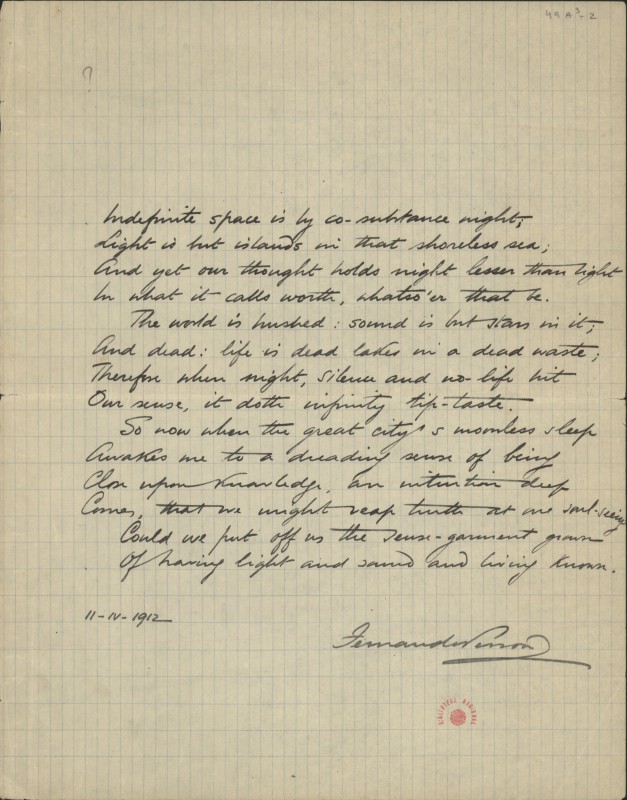 49A³-2
?
Indefinite space is by co-substance night;
Light is but islands in that shoreless sea;
And yet our thought holds night lesser than light
In what it calls worth, whatso'er that be.
The world is hushed: sound is but stars in it;
And dead: life is dead lakes in a dead waste;
Therefore when night, silence and no-life hit
Our sense, it doth infinity tip-taste.
So now when the great city's moonless sleep
Awakes me to a dreading sense of being
Close upon knowledge, an intention deep
Comes, that we might reap truth at one soul-seeing
Could we put off us the sense-garment grown
Of having light and sound and living known.
11-IV-1912
Fernando Pessoa
BIBLIOTECA NACIONAL